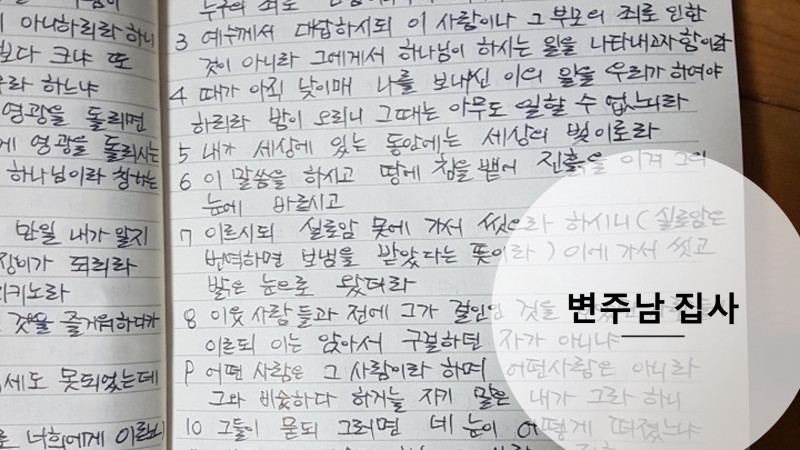 아니하리라 하니
보다 크냐 또
라 하느냐
영광을 돌리면
게 영광을 돌리시는
하나님이라 칭하는
만일 내가 알지
장이가 되리라
라키노라
것을 즐거워하다가
세도 못되었는데
로 너희에게 이르노
누구의 죄로
3 예수께서 대답하시되 이 사람이나 그 부모의 죄로 인한
것이 아니라 그에게서 하나님이 하시는 일을 나타내고자 함이라
4 때가 아직 낮이매 나를 보내신 이의 일을 우리가 하여야
하리라 밤이 오리니 그때는 아무도 일할 수 없느니라
5 내가 세상에 있는 동안에는 세상의 빛이로라
6 이 말씀을 하시고 땅에 침을 뱉어 진흙을 이겨 그의
눈에 바르시고
7 이르시되 실로암 못에 가서 씻으라 하시니 (실로암은
번역하면 보냄을 받았다는 뜻이라) 이에 가서 씻고
밝은 눈으로 왔더라
8 이웃 사람들과 전에 그가 걸인인 것을
이르되 이는 앉아서 구걸하던 자가 아니냐
9 어떤 사람은 그 사람이라 하며 어떤사람은 아니라
그와 비슷하다 하거늘 자기 말은 내가 그라 하니
10 그들이 묻되 그러면 네 눈이 어떻게 떠졌느냐
변주남 집사